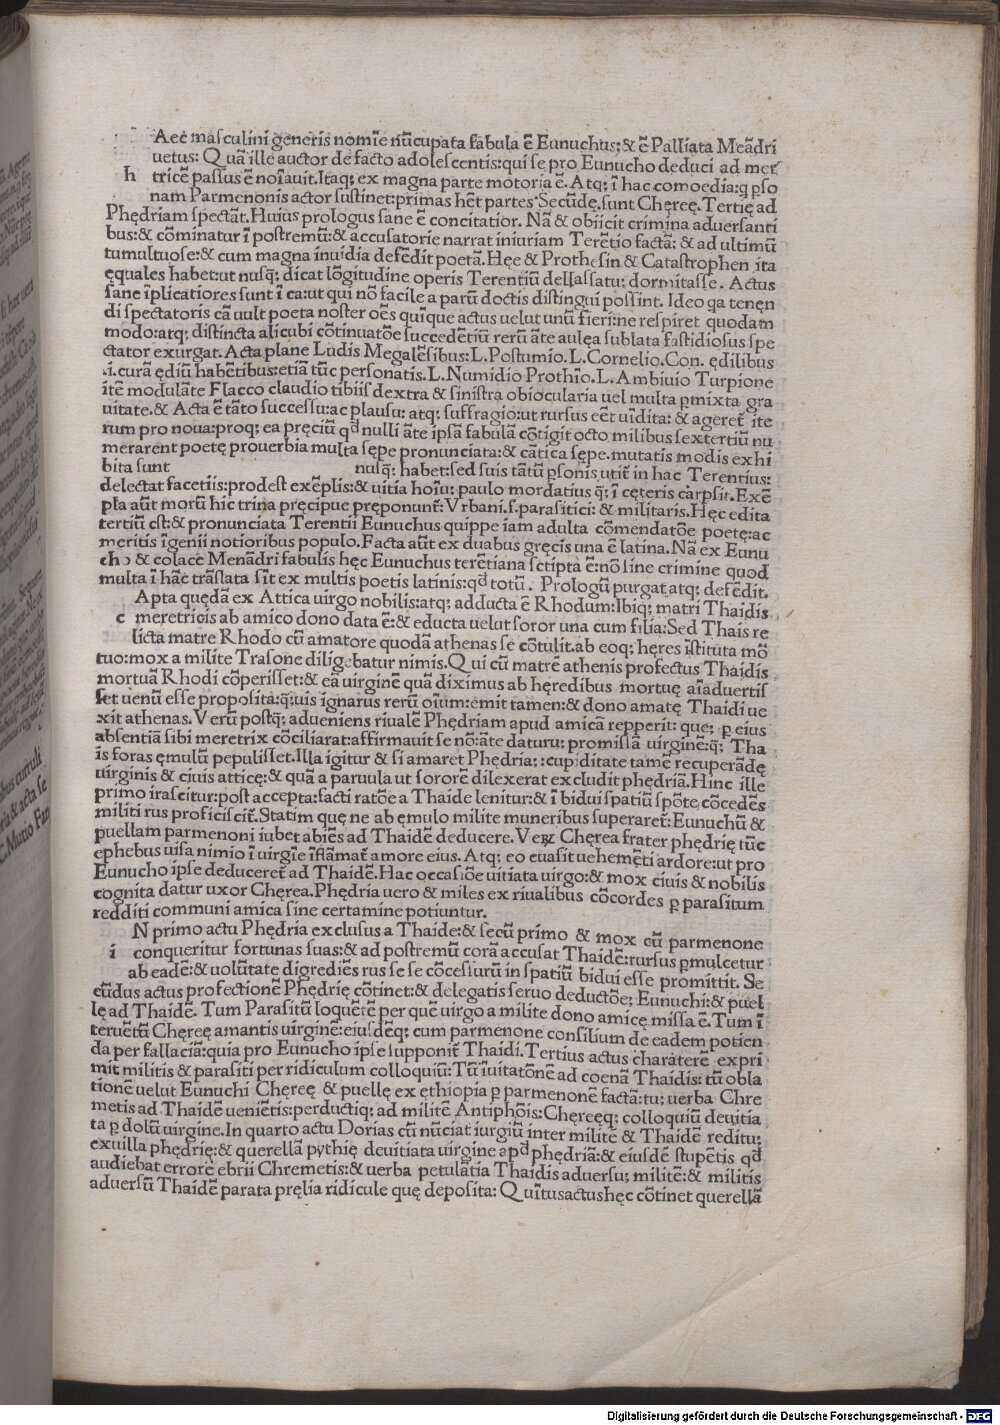 Aec masculini generis nomīe nūcupata fabula ē Eunuchus;& ē Palliata Meādri
uetus: Quā ille auctor de facto adolescentis:qui se pro Eunucho deduci ad mer
h tricē passus ē noīauit.Itaq; ex magna parte motoria ē. Atq; ī hac comoedia:q pso
nam Parmenonis actor sustinet:primas hēt partes·Secūdę.sunt Chęreę. Tertię ad
Phędriam spectāt.Huius prologus sane ē concitatior. Nā & obiicit crimina aduersanti
bus:& cōminatur ī postremū:& accusatorie narrat iniuriam Terētio factā: & ad ultimū
tumultuose:& cum magna inuidia defēdit poetā.Hęe & Prothesin & Catastrophen ita
ęquales habet:ut nusq; dicat lōgitudine operis Terentiū delassatu; dormitasse. Actus
sane īplicatiores sunt ī ca:ut qui nō facile a parū doctis distingui possint. Ideo qa tenen
di spectatoris cā uult poeta noster oēs quīque actus uelut unū fieri:ne respiret quodam
modo:atq; distincta alicubi cōtinuatōe succedētiū rerū āte aulęa sublata fastidiosus spe
ctator exurgat. Acta plane Ludis Megalēsibus:L.Postumio.L.Cornelio.Con. ędilibus
.i.curā ędiū habētibus:etiā tūc personatis.L.Numidio Prothīo.L.Ambiuio Turpione
itē modulāte Flacco claudio tibiis dextra & sinistra obiocularia uel multa pmixta gra
uitate.& Acta ē tāto successu:ac plausu; atq; suffragio:ut rursus eēt uīdita: & ageret̄ ite
rum pro noua:proq; ea pręciū qd nulli āte ipsā fabulā cōtigit octo milibus sextertiū nu
merarent poetę prouerbia multa sępe pronunciata:& cātica sępe.mutatis modis exhi
bita sunt nusq; habet:sed suis tātū psonis utit̄ in hac Terentius:
delectat facetiis:prodest exēplis:& uitia hoīu; paulo mordatius q; ī cęteris carpsit.Exē
pla aūt morū hic trina pręcipue pręponunt̄: Vrbani.s.parasitici: & militaris.Hęc edita
tertiū est:& pronunciata Terentii Eunuchus quippe iam adulta cōmendatōe poetę:ac
meritis īgenii notioribus populo.Facta aūt ex duabus gręcis una ē latina.Nā ex Eunu
cho & colace Menādri fabulis hęc Eunuchus terētiana scripta ē:nō sine crimine quod
multa ī hāc trāslata sīt ex multis poetis latinis:qd totū . Prologū purgat.atq; defēdit.
Apta quędā ex Attica uirgo nobilis:atq; adducta ē Rhodum:Ibiq; matri Thaidis
c meretricis ab amico dono data ē:& educta uelut soror una cum filia:Sed Thais re
licta matre Rhodo cū amatore quodā athenas se cōtulit.ab eoq; hęres īstituta mō
tuo:mox a milite Trasone diligebatur nimis.Qui cū matrē athenis profectus Thaidis
mortuā Rhodi cōperisset:& eā uirginē quā diximus ab hęredibus mortuę aīaduertis
set uenū esse proposita:q;uis ignarus rerū oīum:emit tamen:& dono amatę Thaidi ue
xit athenas.Verū postq; adueniens riualē Phędriam apud amicā repperit: que; p eius
absentiā sibi meretrix cōciliarat:affirmauit se nō:āte daturu; promissā uirginē:q; Tha
is foras ęmulū pepulisset.Illa igitur & si amaret Phędria; :cupiditate tamē recuperādę
uirginis & ciuis atticę:& quā a paruula ut sororē dilexerat excludit phędriā.Hinc ille
primo irascitur:post accepta:facti ratōe a Thaide lenitur:& ī bidui spatiū spōte cōcedēs
militi rus proficiscit̄.Statim quę ne ab ęmulo milite muneribus superaret̄:Eunuchū &
puellam parmenoni iubet abiēs ad Thaidē deducere.Veꝝ Chęrea frater phędrię tūc
ephebus uisa nimio ī uirgīe īflāmat̄ amore eius. Atq; eo euasit uehemēti ardore:ut pro
Eunucho ipse deduceret̄ ad Thaidē.Hac occasiōe uitiata uirgo:& mox ciuis & nobilis
cognita datur uxor Chęrea.Phędria uero & miles ex riualibus cōcordes p parasitum
redditi communi amica sine certamine potiuntur.
N primo actu Phędria exclusus a Thaide:& secū primo & mox cū parmenone
i conqueritur fortunas suas:& ad postremū corā accusat Thaidē:rursus pmulcetur
ab eadē:& uolūtate digrediēs rus se se cōcessurū in spatiū bidui esse promittit. Se
cūdus actus profectionē Phędrię cōtinet:& delegatis seruo deductōe; Eunuchi:& puel
lę ad Thaidē. Tum Parasitū loquērē per quē uirgo a milite dono amicę missa ē.Tum ī
teruētū Chęreę amantis uirginē:eiusdēq; cum parmenone consilium de eadem potien
da per fallaciā:quia pro Eunucho ipse supponit̄ Thaidi.Tertius actus charaterē expri
mit militis & parasiti per ridiculum colloquiū:Tū īuitatōnē ad coenā Thaidis: tū obla
tionē uelut Eunuchi Chęreę & puellę ex ęthiopia p parmenonē factā:tu; uerba Chre
metis ad Thaidē ueniētis:perductiq; ad militē Antiphōis:Chęreęq; colloquiū deuitia
ta p dolū uirgine.In quarto actu Dorias cū nūciat iurgiū inter militē & Thaidē reditu;
exuilla phędrię:& querellā pythię deuitiata uirgine apd phędriā:& eiusdē stupētis qd
audiebat errorē ebrii Chremetis:& uerba petulātia Thaidis aduersu; militē:& militis
aduersū Thaidē parata pręlia ridicule quę deposita: Quītusactushęc cōtinet querellā
Digitalisierung gefördert durch die Deutsche Forschungsgemeinschaft - DFG